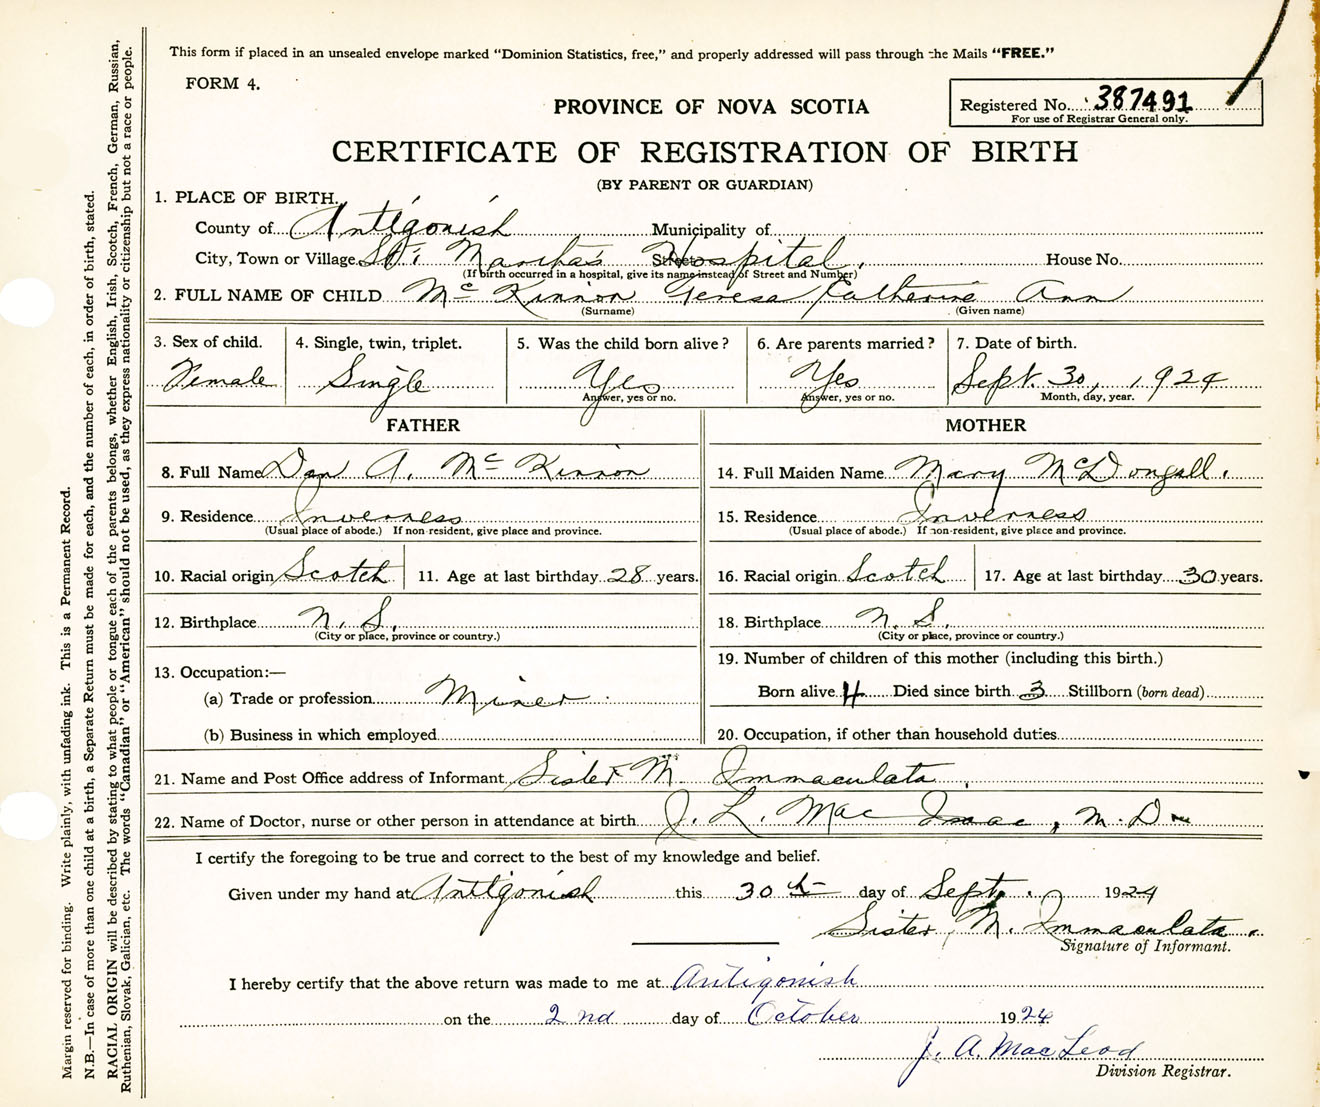 This form if placed in an unsealed envelope marked “Dominion Statistics, free,” and properly addressed will pass through the Mails “FREE.”
FORM 4.
Registered No. 387491
For use of Registrar General only.
PROVINCE OF NOVA SCOTIA
CERTIFICATE OF REGISTRATION OF BIRTH
(BY PARENT OR GUARDIAN)
1. PLACE OF BIRTH.
County of Antigonish Municipality of
City, Town or Village St. Martha's Hospital. Street House No.
(If birth occurred in a hospital, give its name instead of Street and Number)
2. FULL NAME OF CHILD McKinnon Teresa Catherine Ann
(Surname) (Given name)
3. Sex of child. 4. Single, twin, triplet. 5. Was the child born alive? 6. Are parents married? 7. Date of birth.
Female Single Yes Yes Sept. 30, 1924
Answer, yes or no. Answer, yes or no. Month, day, year.
FATHER MOTHER
8. Full Name Dan A. McKinnon 14. Full Maiden Name Mary McDougall.
9. Residence Inverness 15. Residence Inverness
(Usual place of abode.) If non-resident, give place and province. (Usual place of abode.) If non-resident, give place and province.
10. Racial origin Scotch 11. Age at last birthday 28 years. 16. Racial origin Scotch 17. Age at last birthday 30 years.
12. Birthplace N. S. 18. Birthplace N. S.
(City or place, province or country.) (City or place, province or country.)
13. Occupation:— 19. Number of children of this mother (including this birth.)
(a) Trade or profession Miner Born alive 4 Died since birth 3 Stillborn (born dead)
(b) Business in which employed 20. Occupation, if other than household duties
21. Name and Post Office address of Informant Sister M. Immaculata
22. Name of Doctor, nurse or other person in attendance at birth J. L. MacIsaac, M. D.
I certify the foregoing to be true and correct to the best of my knowledge and belief.
Given under my hand at Antigonish this 30th day of Sept. 1924
Sister M. Immaculata.
Signature of Informant.
I hereby certify that the above return was made to me at Antigonish
on the 2nd day of October 1924
J. A. MacLeod
Division Registrar.
Margin reserved for binding. Write plainly, with unfading ink. This is a Permanent Record.
N.B.—In case of more than one child at a birth, a Separate Return must be made for each, and the number of each, in order of birth, stated.
RACIAL ORIGIN will be described by stating to what people or tongue each of the parents belongs, whether English, Irish, Scotch, French, German, Russian,
Ruthenian, Slovak, Galician, etc. The words “Canadian” or “American” should not be used, as they express nationality or citizenship but not a race or people.